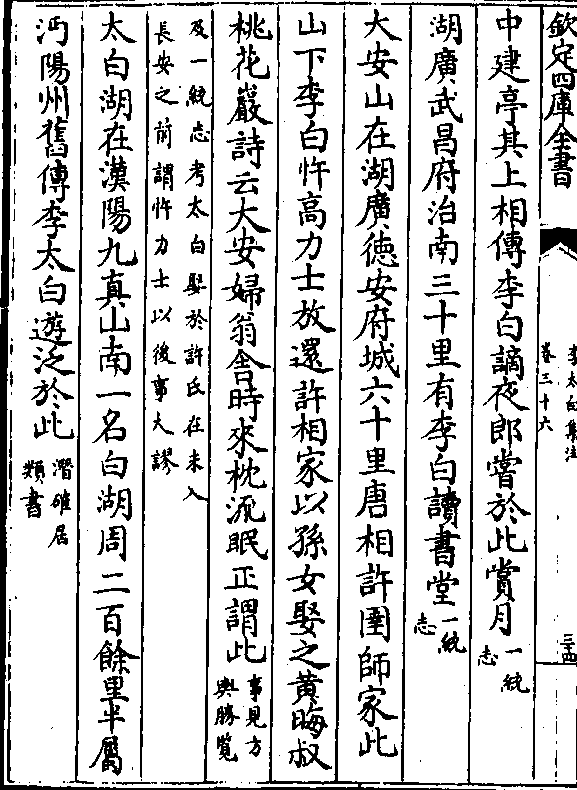 欽定四庫全書
李太白集注
卷三十六
三十四
中建亭其上相傳李白謫夜郎嘗於此賞月一統志
湖廣武昌府治南三十里有李白讀書堂一統志
大安山在湖廣徳安府城六十里唐相許圉師家此
山下李白忤高力士放還許相家以孫女娶之黄晦叔
桃花巖詩云大安婦翁舎時來枕流眠正謂此事見方輿勝覧
及一統志考太白娶於許氏在未入
長安之前謂忤力士以後事大謬
太白湖在漢陽九真山南一名白湖周二百餘里半屬
沔陽州舊傳李太白遊泛於此潛確居類書